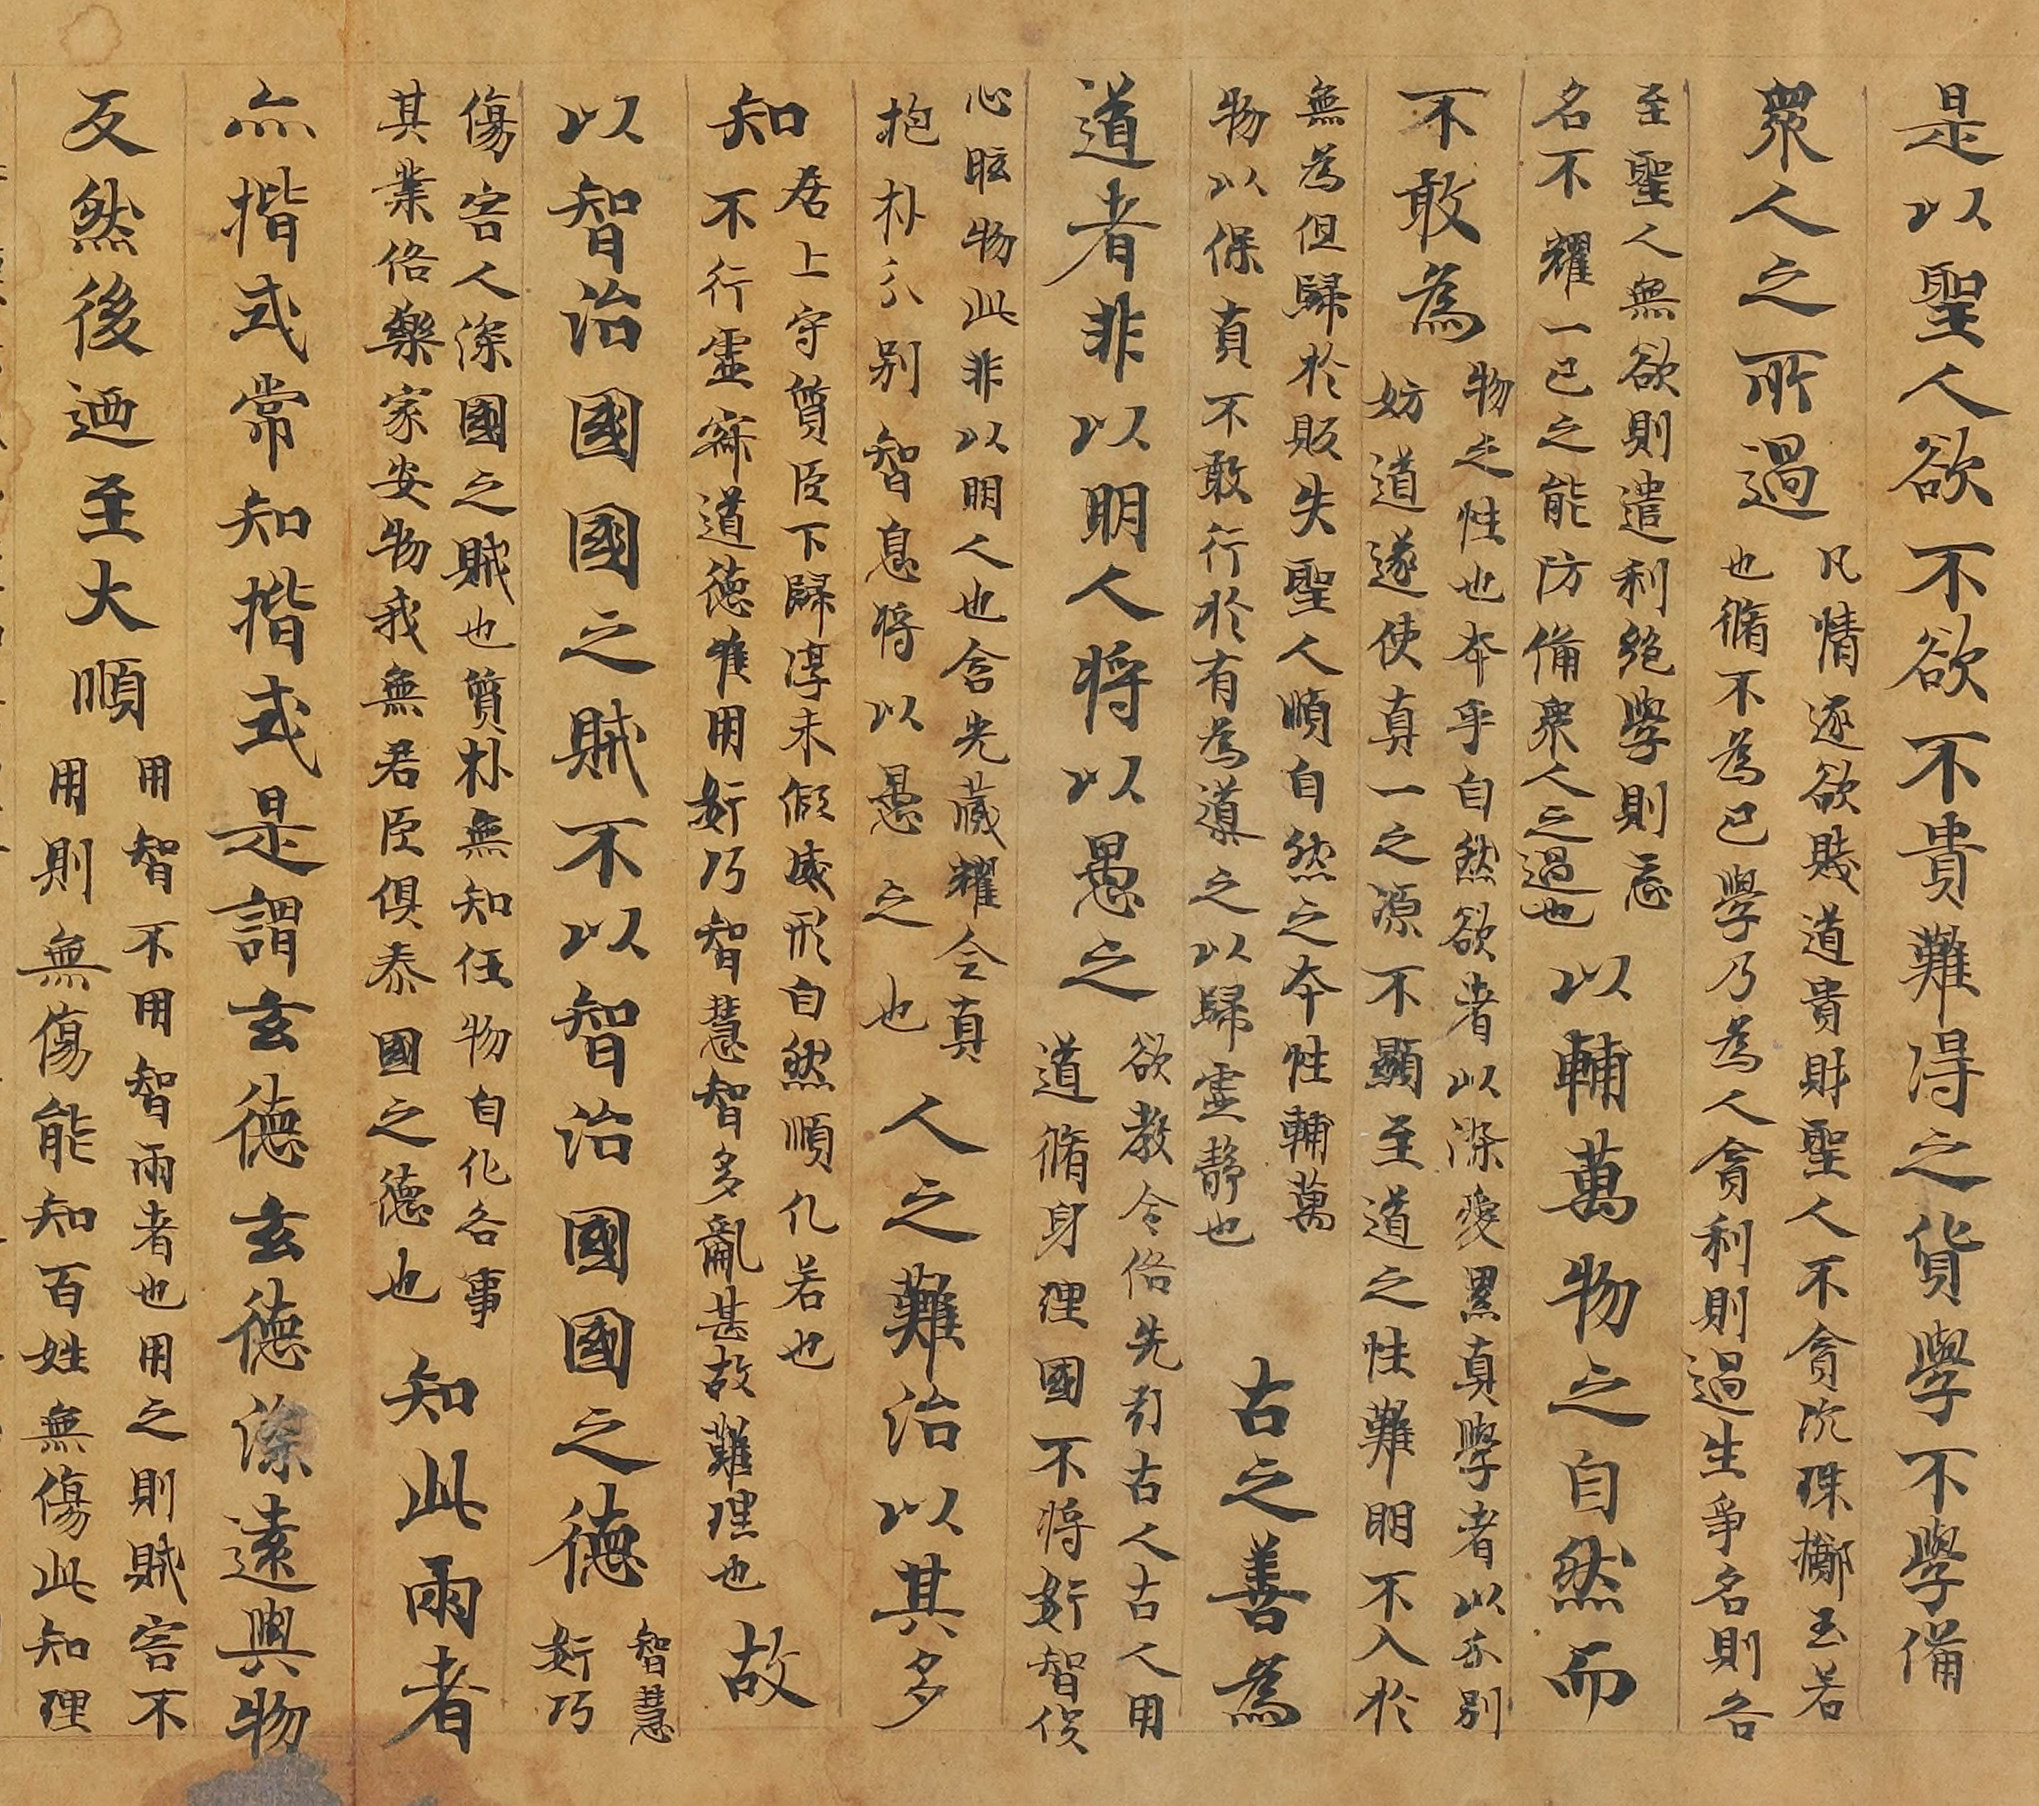 是以聖人欲不欲不貴難得之貨學不學備
衆人之所過
凡情逐欲賤道貴財聖人不貪沉珠擲玉若
也脩不為已學乃為人貪利則過生爭名則各
至聖人無欲則遣利絶學則忘
名不耀一已之能防備衆人之過也
以輔萬物之自然而
不敢為
物之性也夲乎自然欲者以染愛累真學者以分別
妨道遂使真一之源不顯至道之性難明不入於
無為但歸於敗失聖人順自然之夲性輔萬
物以保真不敢行於有為導之以歸虛靜也
古之善為
道者非以明人將以愚之
欲教令俗先引古人古人用
道脩身理國不將姧智役
心眩物此非以明人也含光藏耀全真
抱朴分別智息將以愚之也
人之難治以其多
知
君上守質臣下歸淳未假威形自然順化若也
不行虛寂道德唯用姧巧智慧智多亂甚故難理也
故
以智治國國之賊不以智治國國之德
智慧
姧巧
傷害人深國之賊也質朴無知任物自化各事
其業俗樂家安物我無君臣俱泰國之德也
知此兩者
亦揩式常知揩式是謂玄德玄德深遠與物
反然後迺至大順
用智不用智兩者也用之則賊害不
用則無傷能知百姓無傷此知理